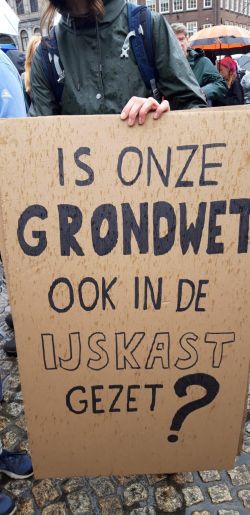 IS ONZE
GRONDWET
OOK IN DE
IJSKAST
GEZET?